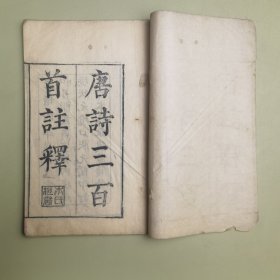 唐詩三百
首註釋